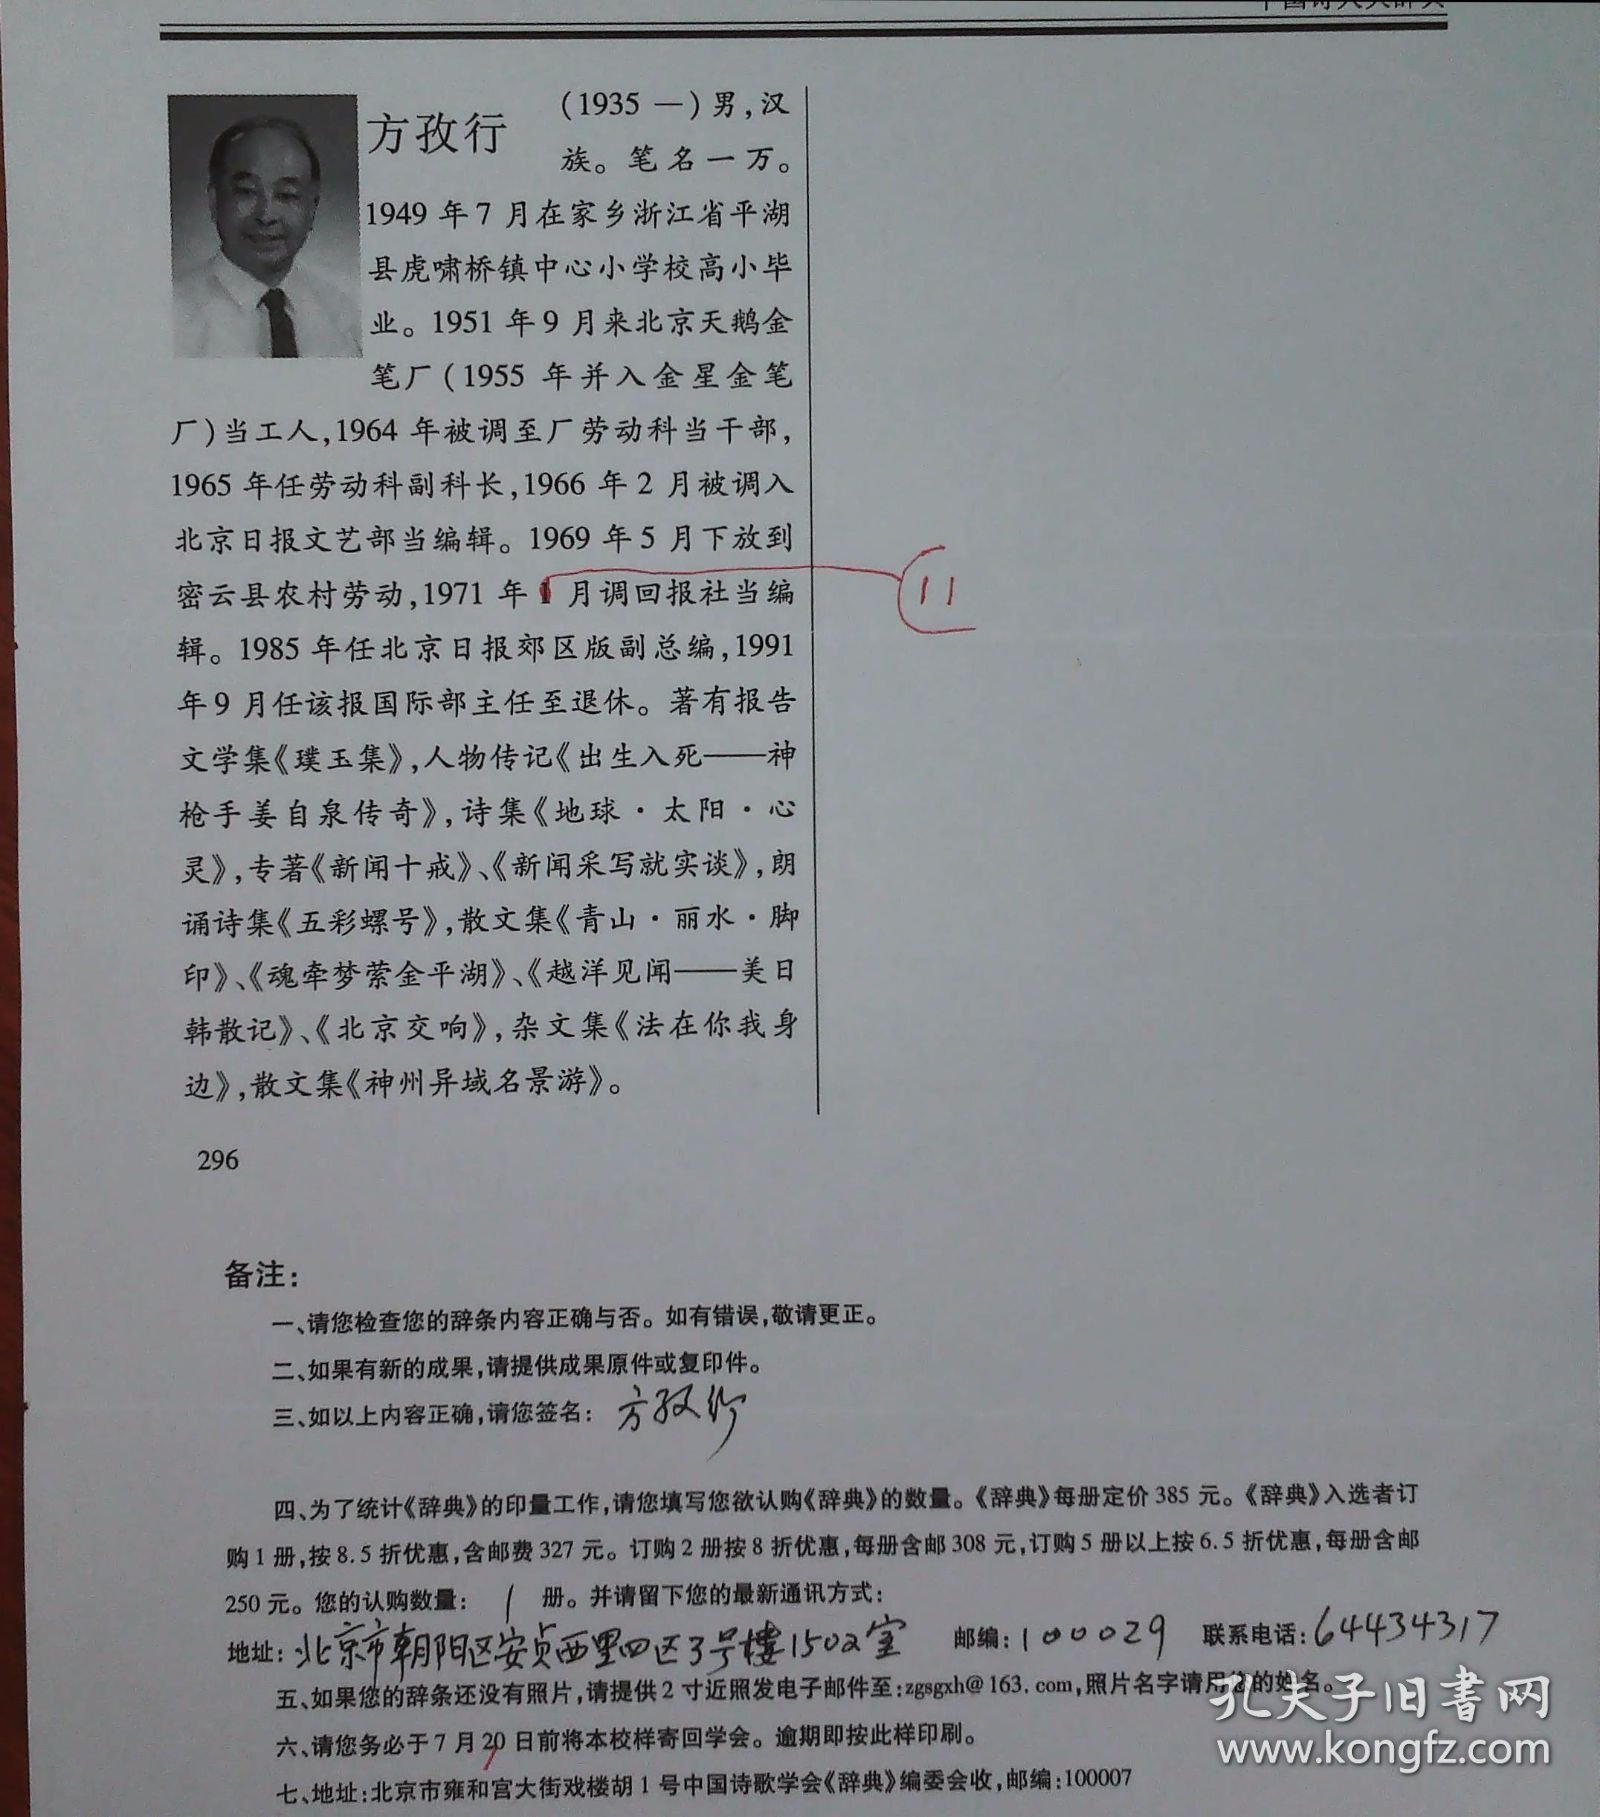 中国诗人大辞典
方孜行
(1935 —) 男,汉
族。笔名一万。
1949 年 7 月在家乡浙江省平湖
县虎啸桥镇中心小学校高小毕
业。1951 年 9 月来北京天鹅金
笔厂(1955 年并入金星金笔
厂)当工人,1964 年被调至厂劳动科当干部,
1965 年任劳动科副科长,1966 年 2 月被调入
北京日报文艺部当编辑。1969 年 5 月下放到
密云县农村劳动,1971 年 1 月调回报社当编
11
辑。1985 年任北京日报郊区版副总编,1991
年 9 月任该报国际部主任至退休。著有报告
文学集《璞玉集》,人物传记《出生入死——神
枪手姜自泉传奇》,诗集《地球·太阳·心
灵》,专著《新闻十戒》、《新闻采写就实谈》,朗
诵诗集《五彩螺号》,散文集《青山·丽水·脚
印》、《魂牵梦萦金平湖》、《越洋见闻——美日
韩散记》、《北京交响》,杂文集《法在你我身
边》,散文集《神州异域名景游》。
296
备注:
一、请您检查您的辞条内容正确与否。如有错误,敬请更正。
二、如果有新的成果,请提供成果原件或复印件。
三、如以上内容正确,请您签名: 方孜行
四、为了统计《辞典》的印量工作,请您填写您欲认购《辞典》的数量。《辞典》每册定价 385 元。《辞典》入选者订
购 1 册,按 8.5 折优惠,含邮费 327 元。订购 2 册按 8 折优惠,每册含邮 308 元,订购 5 册以上按 6.5 折优惠,每册含邮
250 元。您的认购数量: 1 册。并请留下您的最新通讯方式:
地址: 北京市朝阳区安贞西里四区3号楼1502室 邮编: 100029 联系电话: 64434317
五、如果您的辞条还没有照片,请提供 2 寸近照发电子邮件至:zgsgxh@163.com,照片名字请用您的姓名。
六、请您务必于 7 月 20 日前将本校样寄回学会。逾期即按此样印刷。
七、地址:北京市雍和宫大街戏楼胡 1 号中国诗歌学会《辞典》编委会收,邮编:100007
孔夫子旧书网
www.kongfz.com